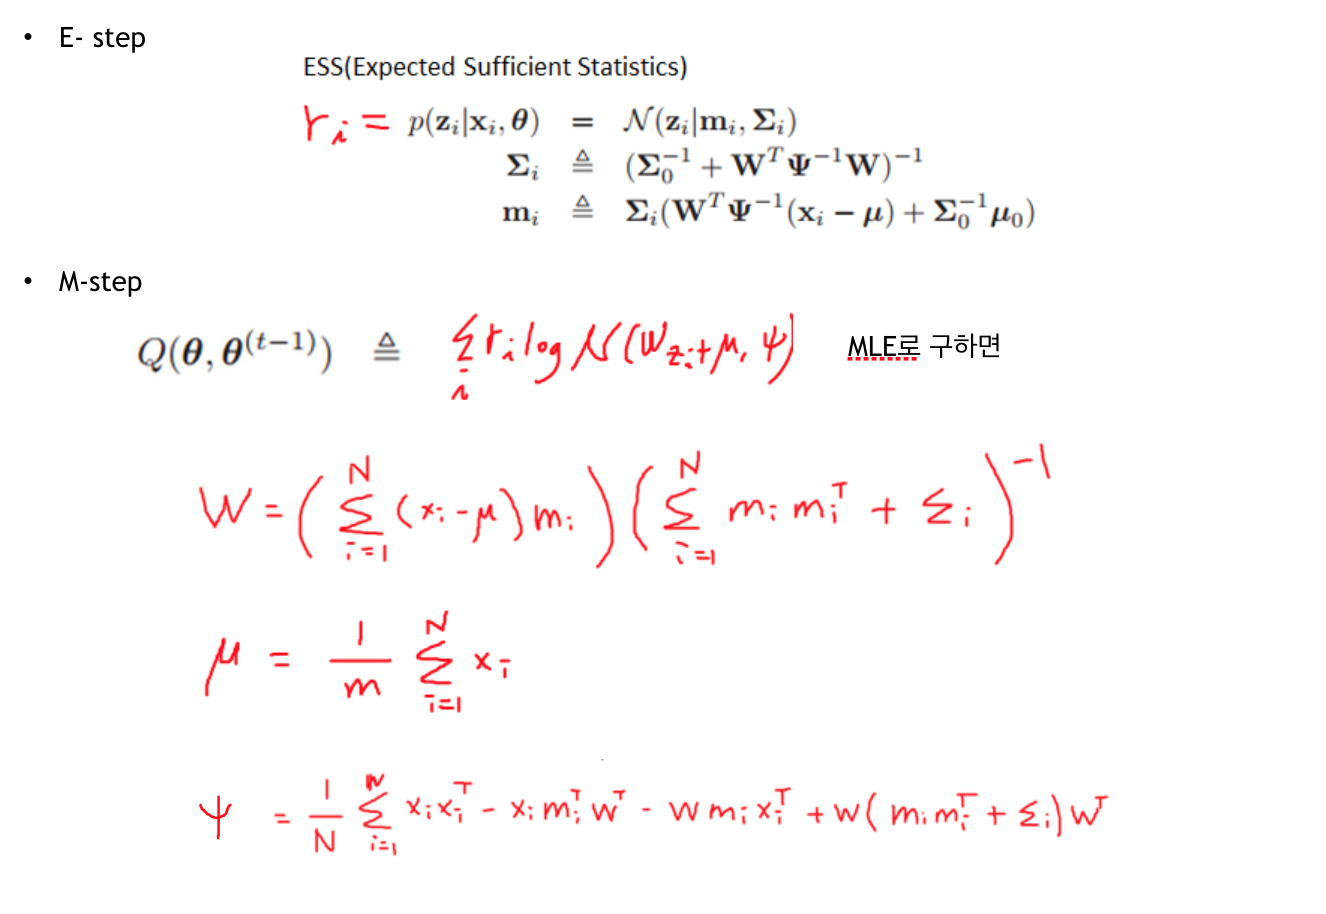 • E- step
ESS(Expected Sufficient Statistics)
r_i = p(z_i|x_i, θ) = 𝒩(z_i|m_i, Σ_i)
Σ_i ≜ (Σ_0^{-1} + W^T Ψ^{-1} W)^{-1}
m_i ≜ Σ_i(W^T Ψ^{-1}(x_i − μ) + Σ_0^{-1} μ_0)
• M-step
Q(θ, θ^{(t−1)}) ≜ Σ_i r_i log N(W z_i + μ, ψ) MLE로 구하면
W = (Σ_{i=1}^{N} (x_i - μ) m_i) (Σ_{i=1}^{N} m_i m_i^T + Σ_i)^{-1}
μ = 1/m Σ_{i=1}^{N} x_i
ψ = 1/N Σ_{i=1}^{N} x_i x_i^T - x_i m_i^T W^T - W m_i x_i^T + W(m_i m_i^T + Σ_i) W^T